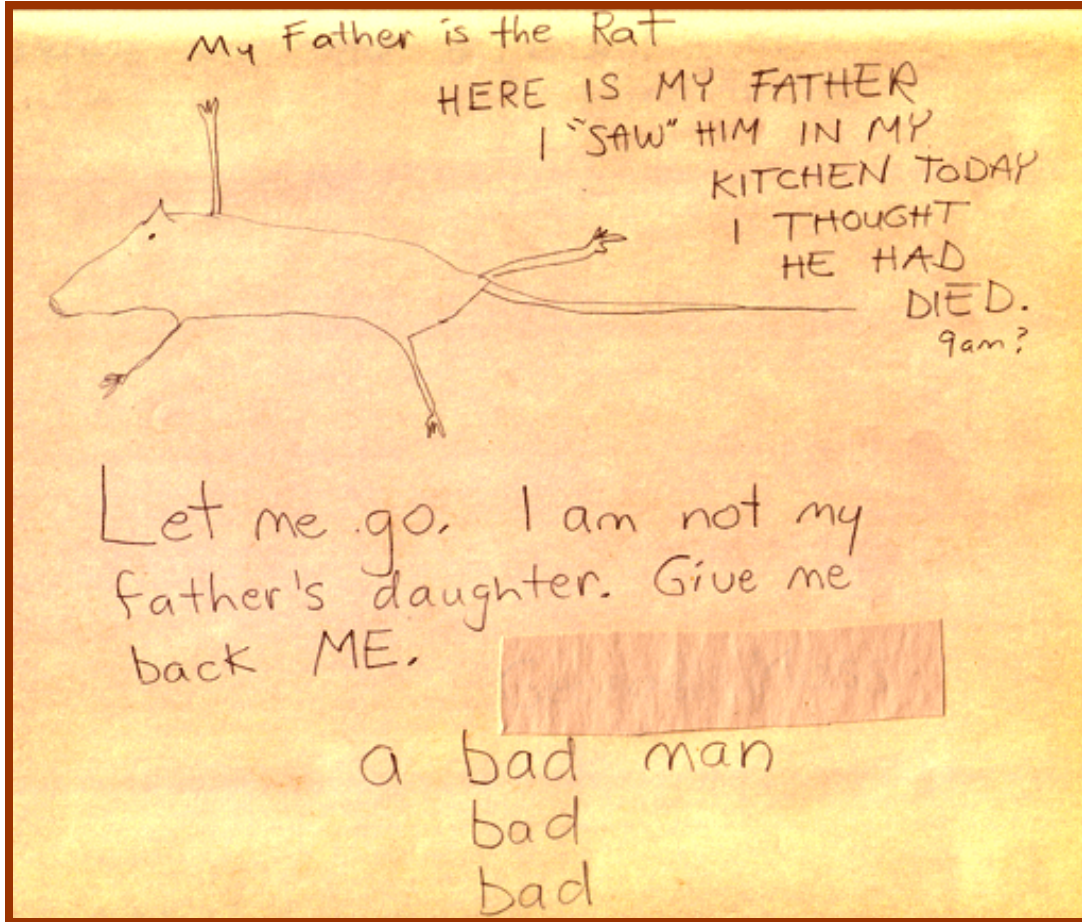 My Father is the Rat
HERE IS MY FATHER
I "SAW" HIM IN MY
KITCHEN TODAY
I THOUGHT
HE HAD
DIED.
9am?
Let me go. I am not my
father's daughter. Give me
back ME.
a bad man
bad
bad